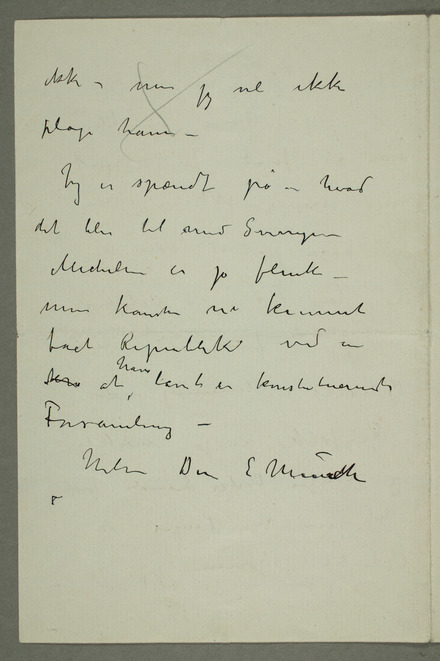 ikke – men jeg vil ikke
plage ham –
Jeg er spændt på – hvad
det blir til med Sverige –
Michelsen er jo flink –
men kanske vi kommet
fået Republik ved en
at have en konstituerende
Forsamling –
Hilsen Din E Munch